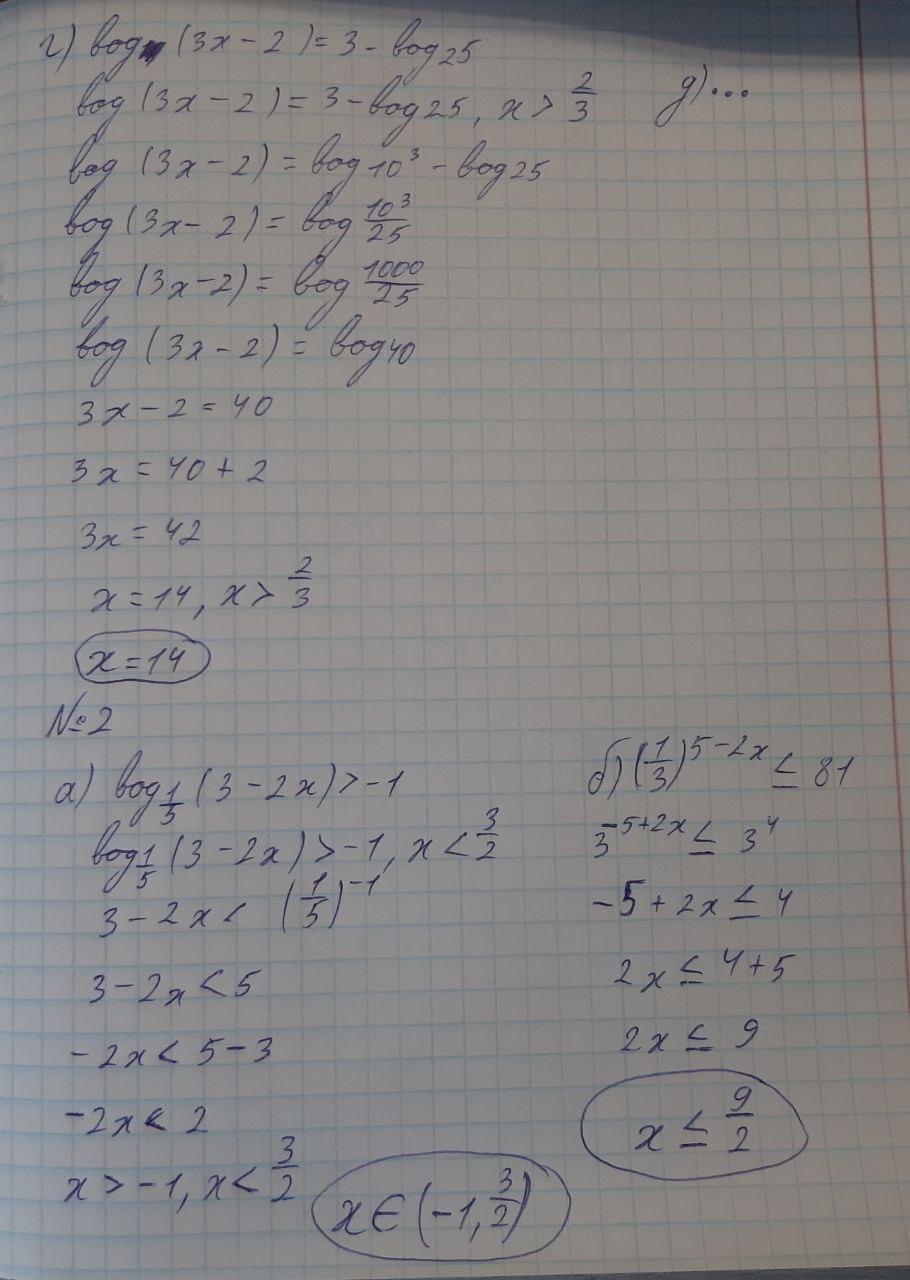 г) log (3x - 2) = 3 - log 25
log (3x - 2) = 3 - log 25, x > 2/3
д) ...
log (3x - 2) = log 10³ - log 25
log (3x - 2) = log 10³/25
log (3x - 2) = log 1000/25
log (3x - 2) = log 40
3x - 2 = 40
3x = 40 + 2
3x = 42
x = 14, x > 2/3
x = 14
№2
а) log_1/5 (3 - 2x) > -1
log_1/5 (3 - 2x) > -1, x < 3/2
3 - 2x < (1/5)^-1
3 - 2x < 5
-2x < 5 - 3
-2x < 2
x > -1, x < 3/2
x ∈ (-1, 3/2)
б) (1/3)^5-2x ≤ 81
3^-5+2x ≤ 3⁴
-5 + 2x ≤ 4
2x ≤ 4 + 5
2x ≤ 9
x ≤ 9/2